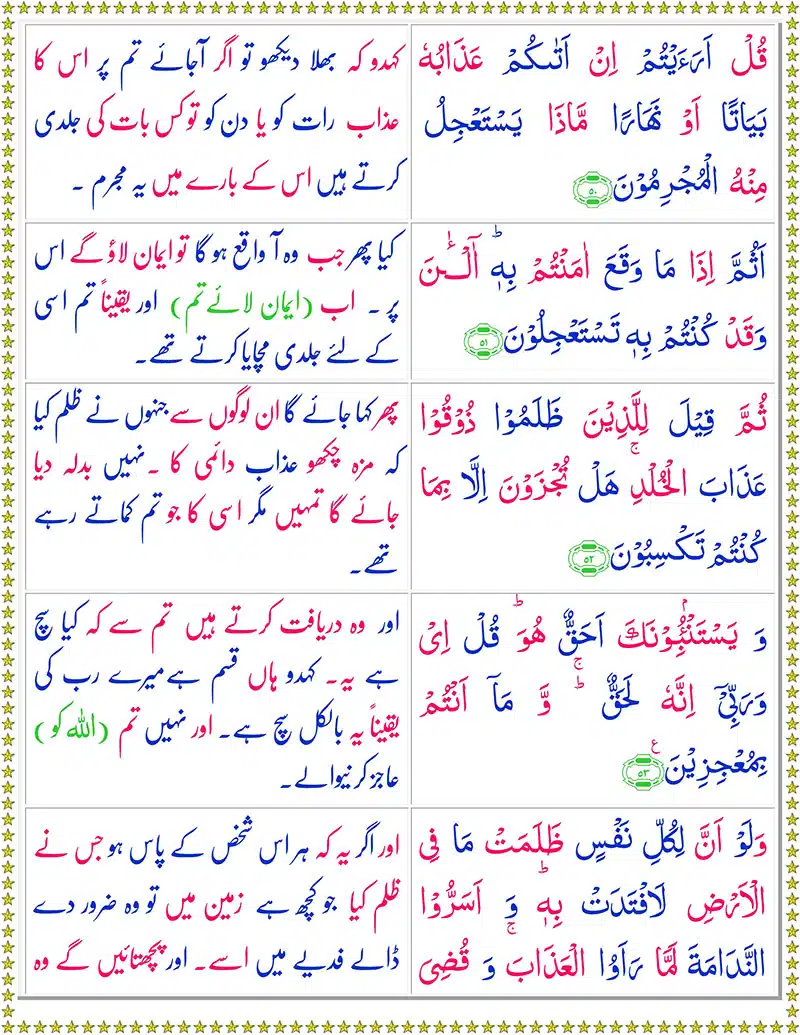 قُلْ اَرَءَيْتُمْ اِنْ اَتٰىكُمْ عَذَابُهٗ
بَيَاتًا اَوْ نَهَارًا مَّاذَا يَسْتَعْجِلُ
مِنْهُ الْمُجْرِمُوْنَ ۵۰
کہدو کہ بھلا دیکھو تو اگر آجائے تم پر اس کا
عذاب رات کو یا دن کو تو کس بات کی جلدی
کرتے ہیں اس کے بارے میں یہ مجرم ۔
اَثُمَّ اِذَا مَا وَقَعَ اٰمَنْتُمْ بِهٖ ؕ آٰلْـٰٔنَ
وَقَدْ كُنْتُمْ بِهٖ تَسْتَعْجِلُوْنَ ۵۱
کیا پھر جب وہ آ واقع ہو گا تو ایمان لاؤ گے اس
پر ۔ اب (ایمان لائے تم) اور یقیناً تم اسی
کے لئے جلدی مچایا کرتے تھے۔
ثُمَّ قِيْلَ لِلَّذِيْنَ ظَلَمُوْا ذُوْقُوْا
عَذَابَ الْخُلْدِ ۚ هَلْ تُجْزَوْنَ اِلَّا بِمَا
كُنْتُمْ تَكْسِبُوْنَ ۵۲
پھر کہا جائے گا ان لوگوں سے جنہوں نے ظلم کیا
کہ مزہ چکھو عذاب دائمی کا ۔ نہیں بدلہ دیا
جائے گا تمہیں مگر اسی کا جو تم کماتے رہے
تھے۔
وَ يَسْتَنْۢبِـُٔوْنَكَ اَحَقٌّ هُوَ ؕ قُلْ اِىْ
وَرَبِّىْۤ اِنَّهٗ لَحَقٌّ ۚؕ وَّ مَاۤ اَنْتُمْ
بِمُعْجِزِيْنَ ۵۳ ع
اور وہ دریافت کرتے ہیں تم سے کہ کیا سچ
ہے یہ۔ کہدو ہاں قسم ہے میرے رب کی
یقیناً یہ بالکل سچ ہے۔ اور نہیں تم (اللہ کو)
عاجز کرنیوالے۔
وَلَوْ اَنَّ لِكُلِّ نَفْسٍ ظَلَمَتْ مَا فِى
الْاَرْضِ لَافْتَدَتْ بِهٖ ؕ وَ اَسَرُّوا
النَّدَامَةَ لَمَّا رَاَوُا الْعَذَابَ ۚ وَ قُضِىَ
اور اگر یہ کہ ہر اس شخص کے پاس ہو جس نے
ظلم کیا جو کچھ ہے زمین میں تو وہ ضرور دے
ڈالے فدیے میں اسے۔ اور پچھتائیں گے وہ